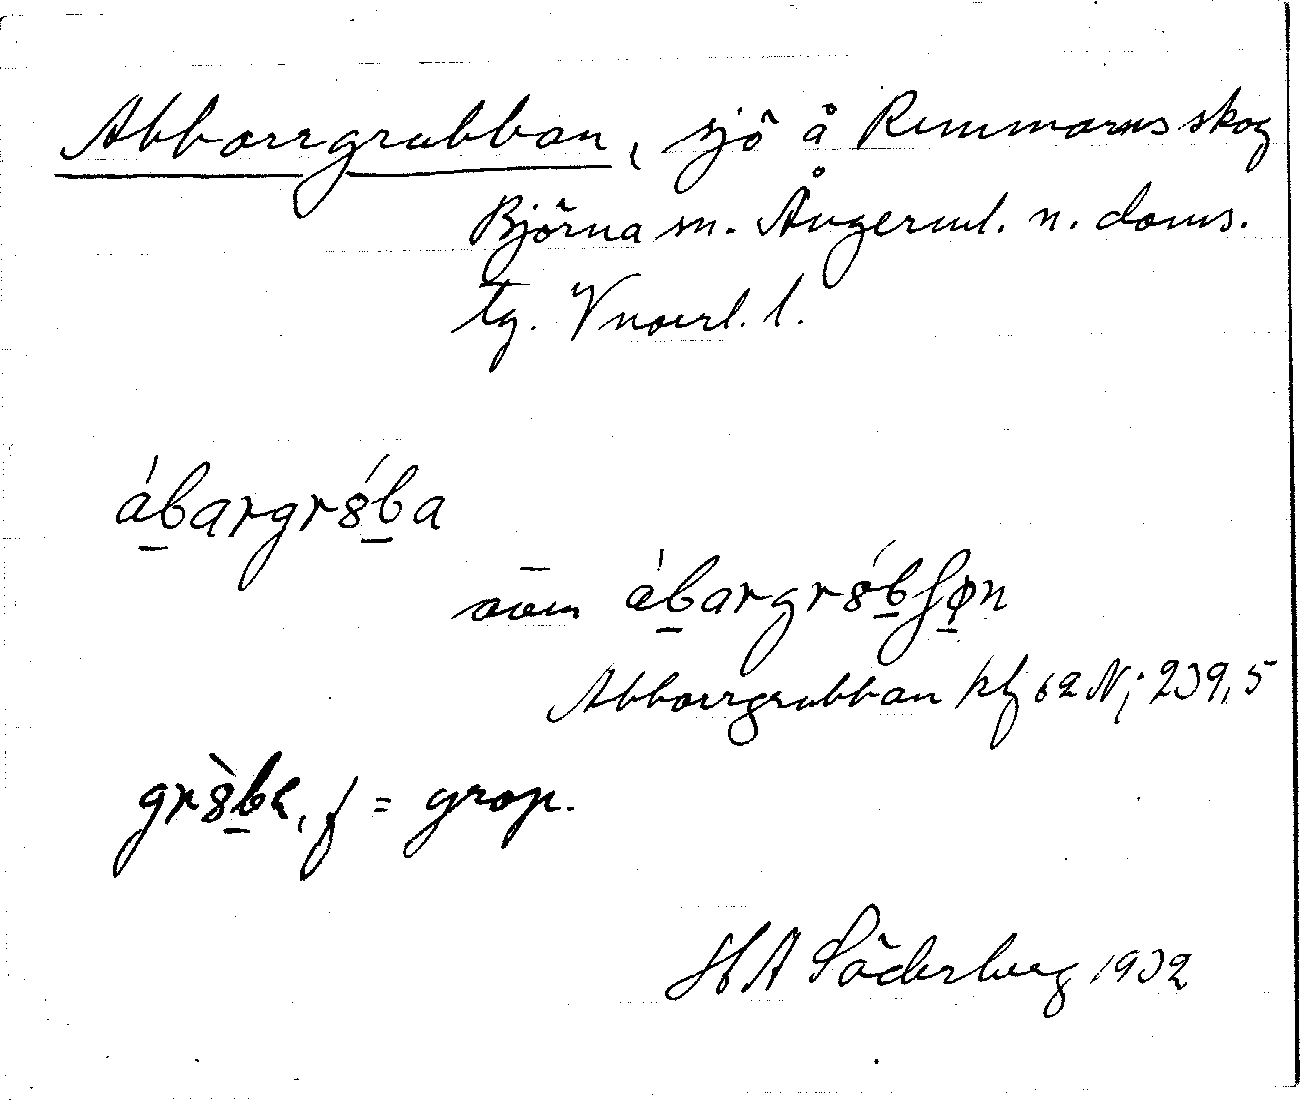 Abborrgrubban, sjö å Remmarns skog
Björna sn. Ångerml. n. doms.
tg. Vnorrl. l.
ábargrśba
även ábargrśbʃøn
Abborrgrubban kbl 62 Nj 239,5
gr8̀ba, f = grop.
H A Söderberg 1932